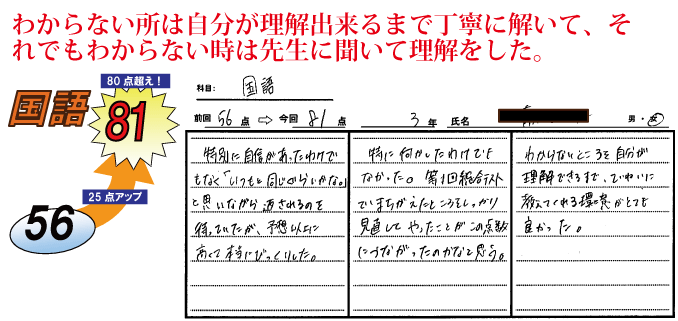 わからない所は自分が理解出来るまで丁寧に解いて、そ
れでもわからない時は先生に聞いて理解をした。
80点超え！
国語
81
25点アップ
56
科目: 国語
前回 56 点 ⇨ 今回 81 点 3 年 氏名 男・女
特別に自信があったわけで
もなく「いつもと同じぐらいかな。」
と思いながら返されるのを
待っていたが、予想以上に
高くて本当にびっくりした。
特に何かしたわけでも
なかった。第1回総合テスト
でまちがえたところをしっかり
見直してやったことがこの点数
につながったのかなと思う。
わからないところを自分が
理解できるまで、ていねいに
教えてくれる環境がとても
良かった。